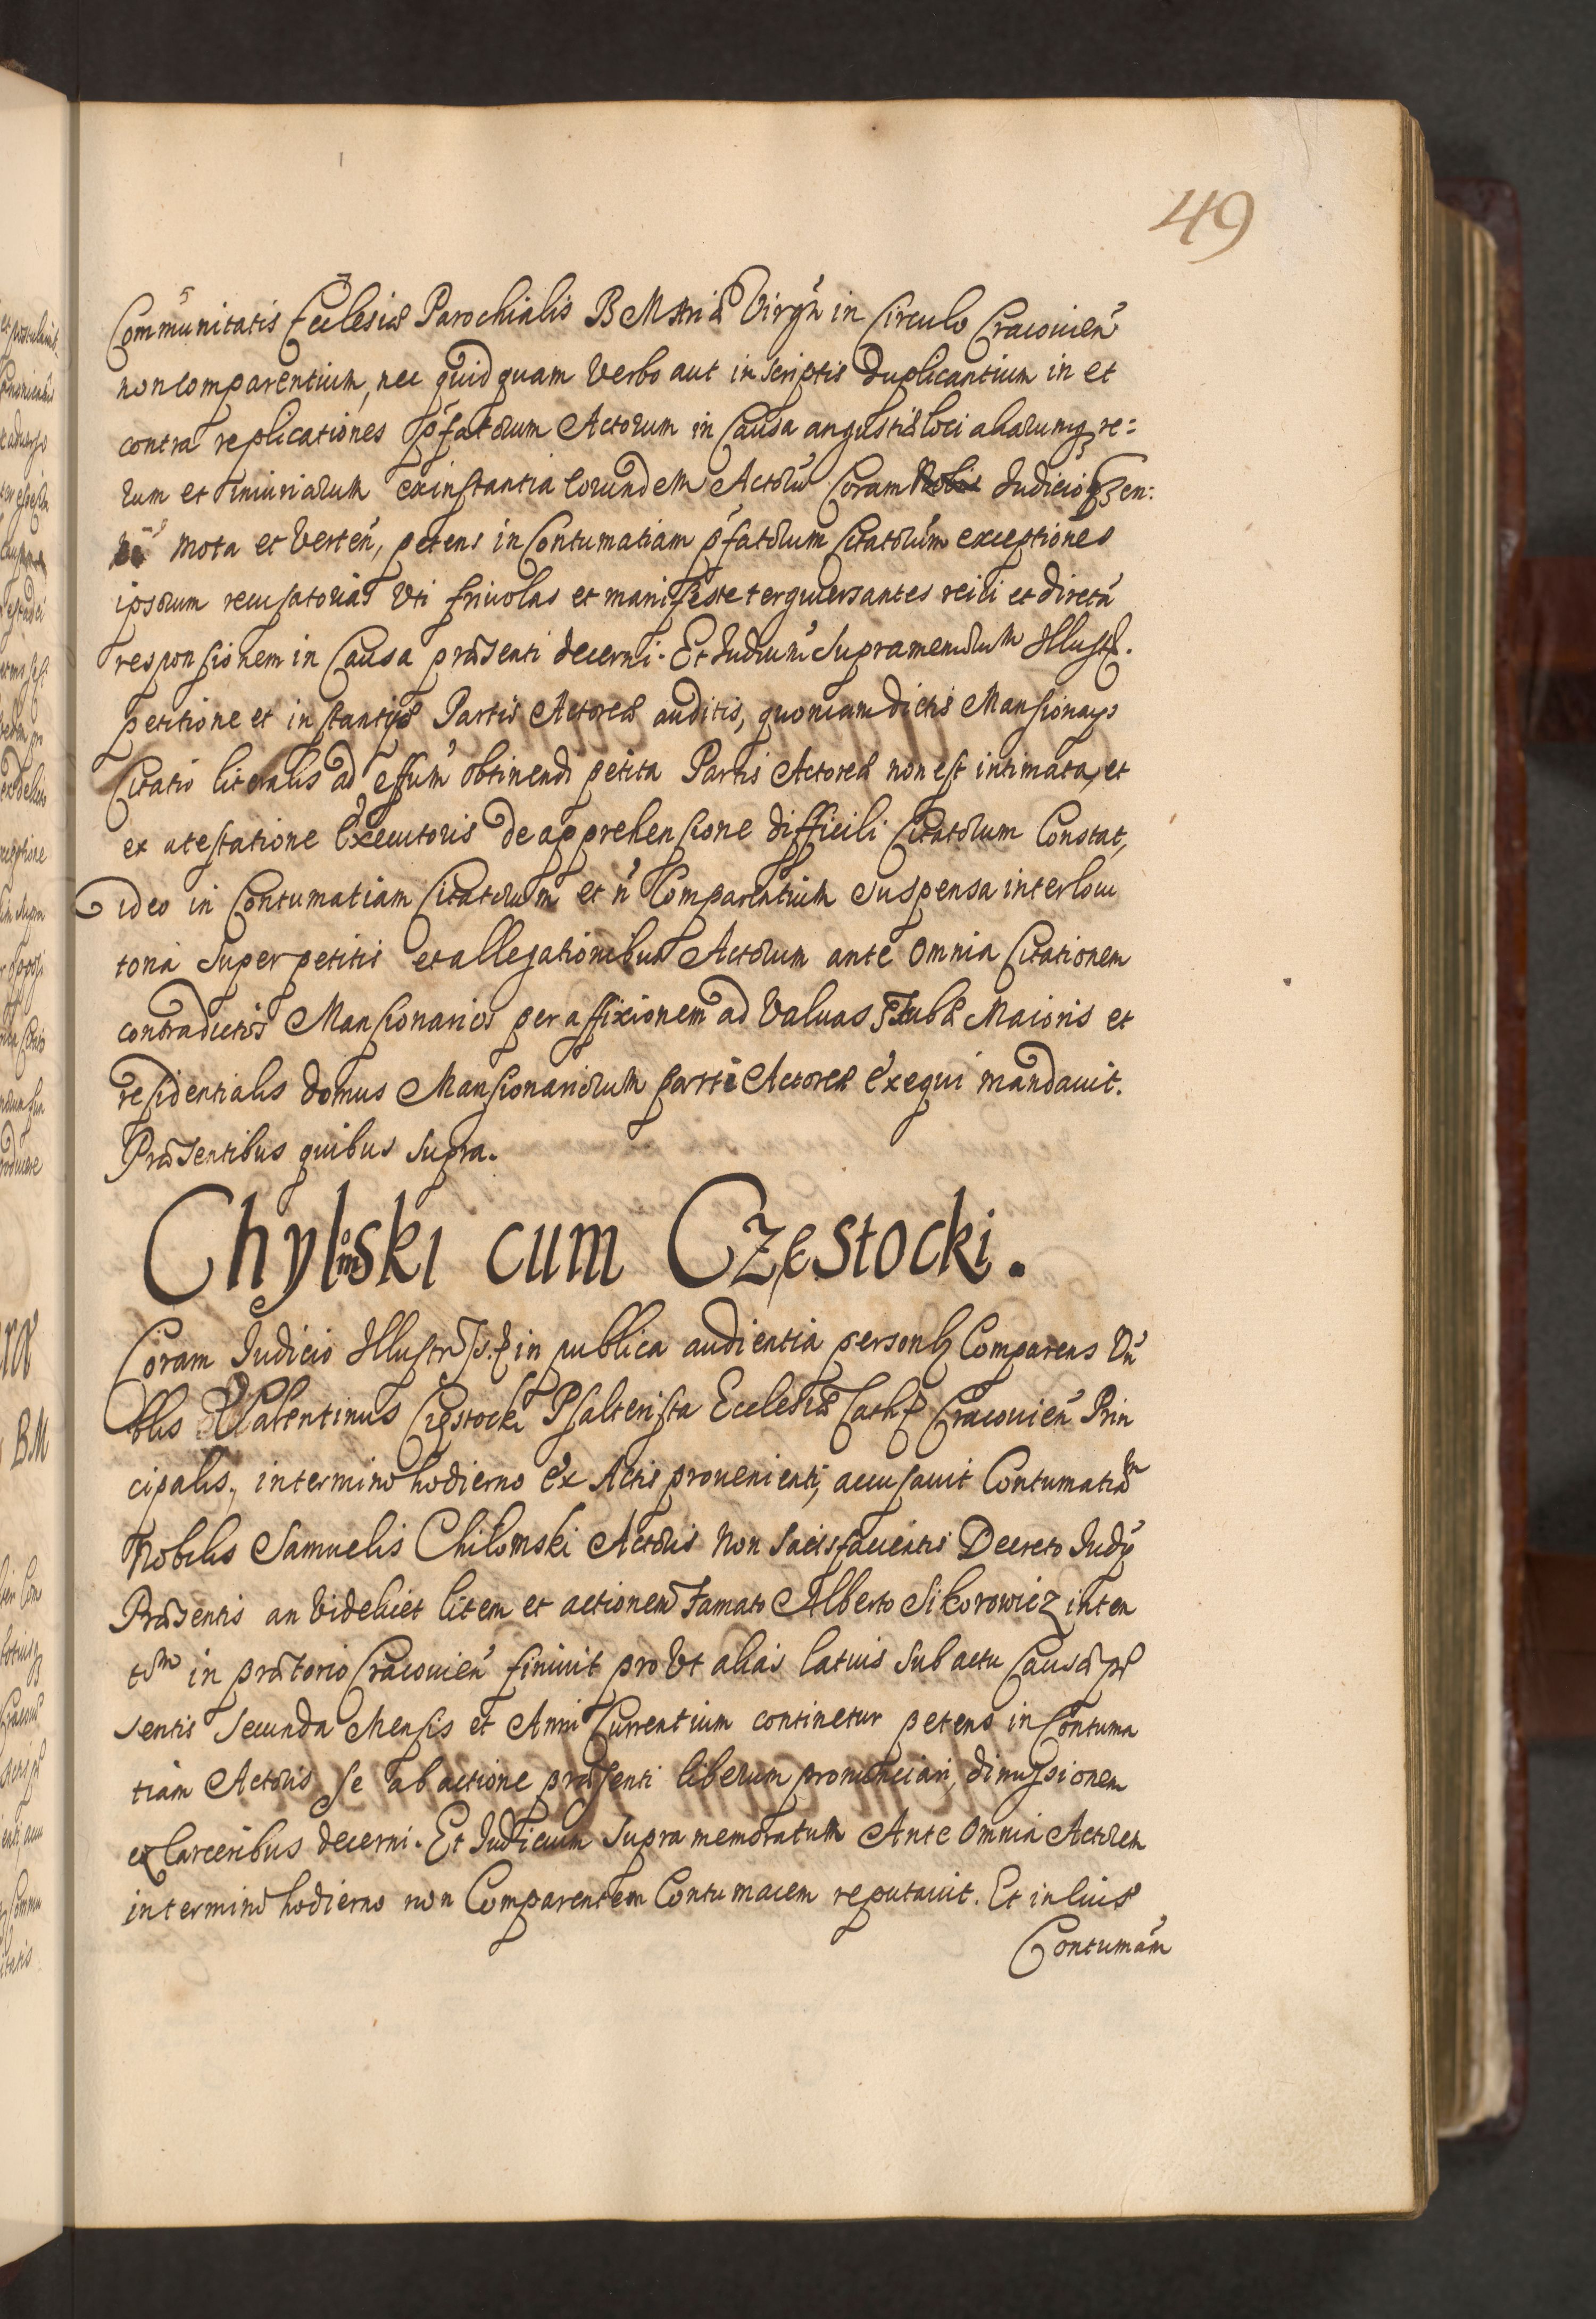 49
Communitatis Ecclesiæ Parochialis B Mariæ Virgń in Circulo Cracouień
non comparentium, nec quidquam verbo aut in scriptis duplicantium in et
contra replicationes p̃fatorum Actorum in Causa angustiæ loci aliarumq̃ re:
rum et iniuriarum ex instantia eorundem Actorũ Coram Judicio p̃sen:
ti mota et verteń, petens in Contumatiam p̃fatorum Citatorum exceptiones
ipsorum recusatorias uti friuolas et manifeste terguiersantes reiici et directã
responsionem in Causa præsenti decerni. Et Judiciũ Supramemõlum Illustr.
petitione et instantijs Partis Actoreæ auditis, quoniam dictis Mansionarijs
Citatio literalis ad effum̃ obtinendi petita Partis Actoreæ non est intimata, et
ex atestatione Executoris de apprehensione difficili Citatorum Constat,
ideo in Contumatiam Citatorum et ñ Comparentium suspensa interlocu
toria super petitis et allegationibus Actorum ante omnia Citationem
contra dictos Mansionarios per affixionem ad Valuas Stubæ Maioris et
residentialis domus Mansionariorum parti Actoreæ exequi mandauit.
Præsentibus quibus supra.
Chylinski cum Częstocki.
Coram Judicio Illustr in publica audientia personlr Comparens Vń
blis Valentinus Cięstocki Psalterista Ecclesiæ Cathł Cracouień Prin
cipalis, in termino hodierno ex Actis prouenienti, accusauit Contumatiam
Nobilis Samuelis Chilomski Actoris non satisfacientis Decreto Judy
Præsentis an videlicet litem et actionem Famato Alberto Sikorowicz inten
tam in prætorio Cracouień finiuit pro Vt alias latius sub actu Causæ præ
sentis Secunda Mensis et Anni Currentium continetur petens in Contuma
tiam Actoris se ab actione præsenti liberum pronunciari, dimissionem
ex Carceribus decerni. Et Judicium supra memoratum Ante Omnia Actorem
in termino hodierno non Comparentem Contumacem reputauit. Et in Cuius
Contumám